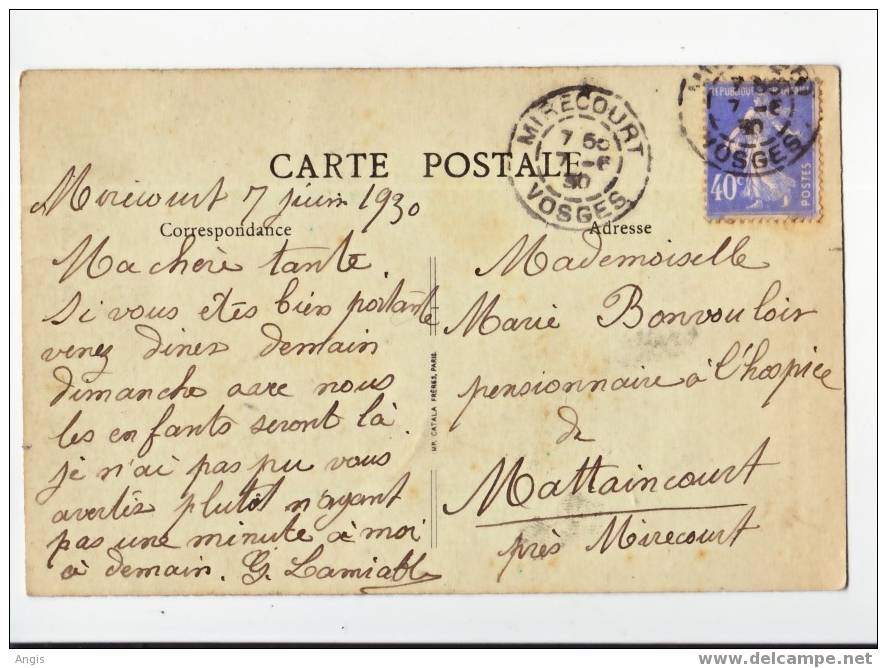 CARTE POSTALE
MIRECOURT
7 55
7 - 6
30
VOSGES
7 - 6
30
VOSGES
40c
POSTES
Mirecourt 7 juin 1930
Correspondance
Ma chère tante.
Si vous etes bien portante
venez diner demain
dimanche avec nous
les enfants seront là.
je n'ai pas pu vous
avertir plutôt n'ayant
pas une minute à moi
à demain. G. Lamiable
IMP. CATALA FRÈRES, PARIS.
Adresse
Mademoiselle
Marie Bonvouloir
pensionnaire à l'hospice
de
Mattaincourt
près Mirecourt
Angis
www.delcampe.net